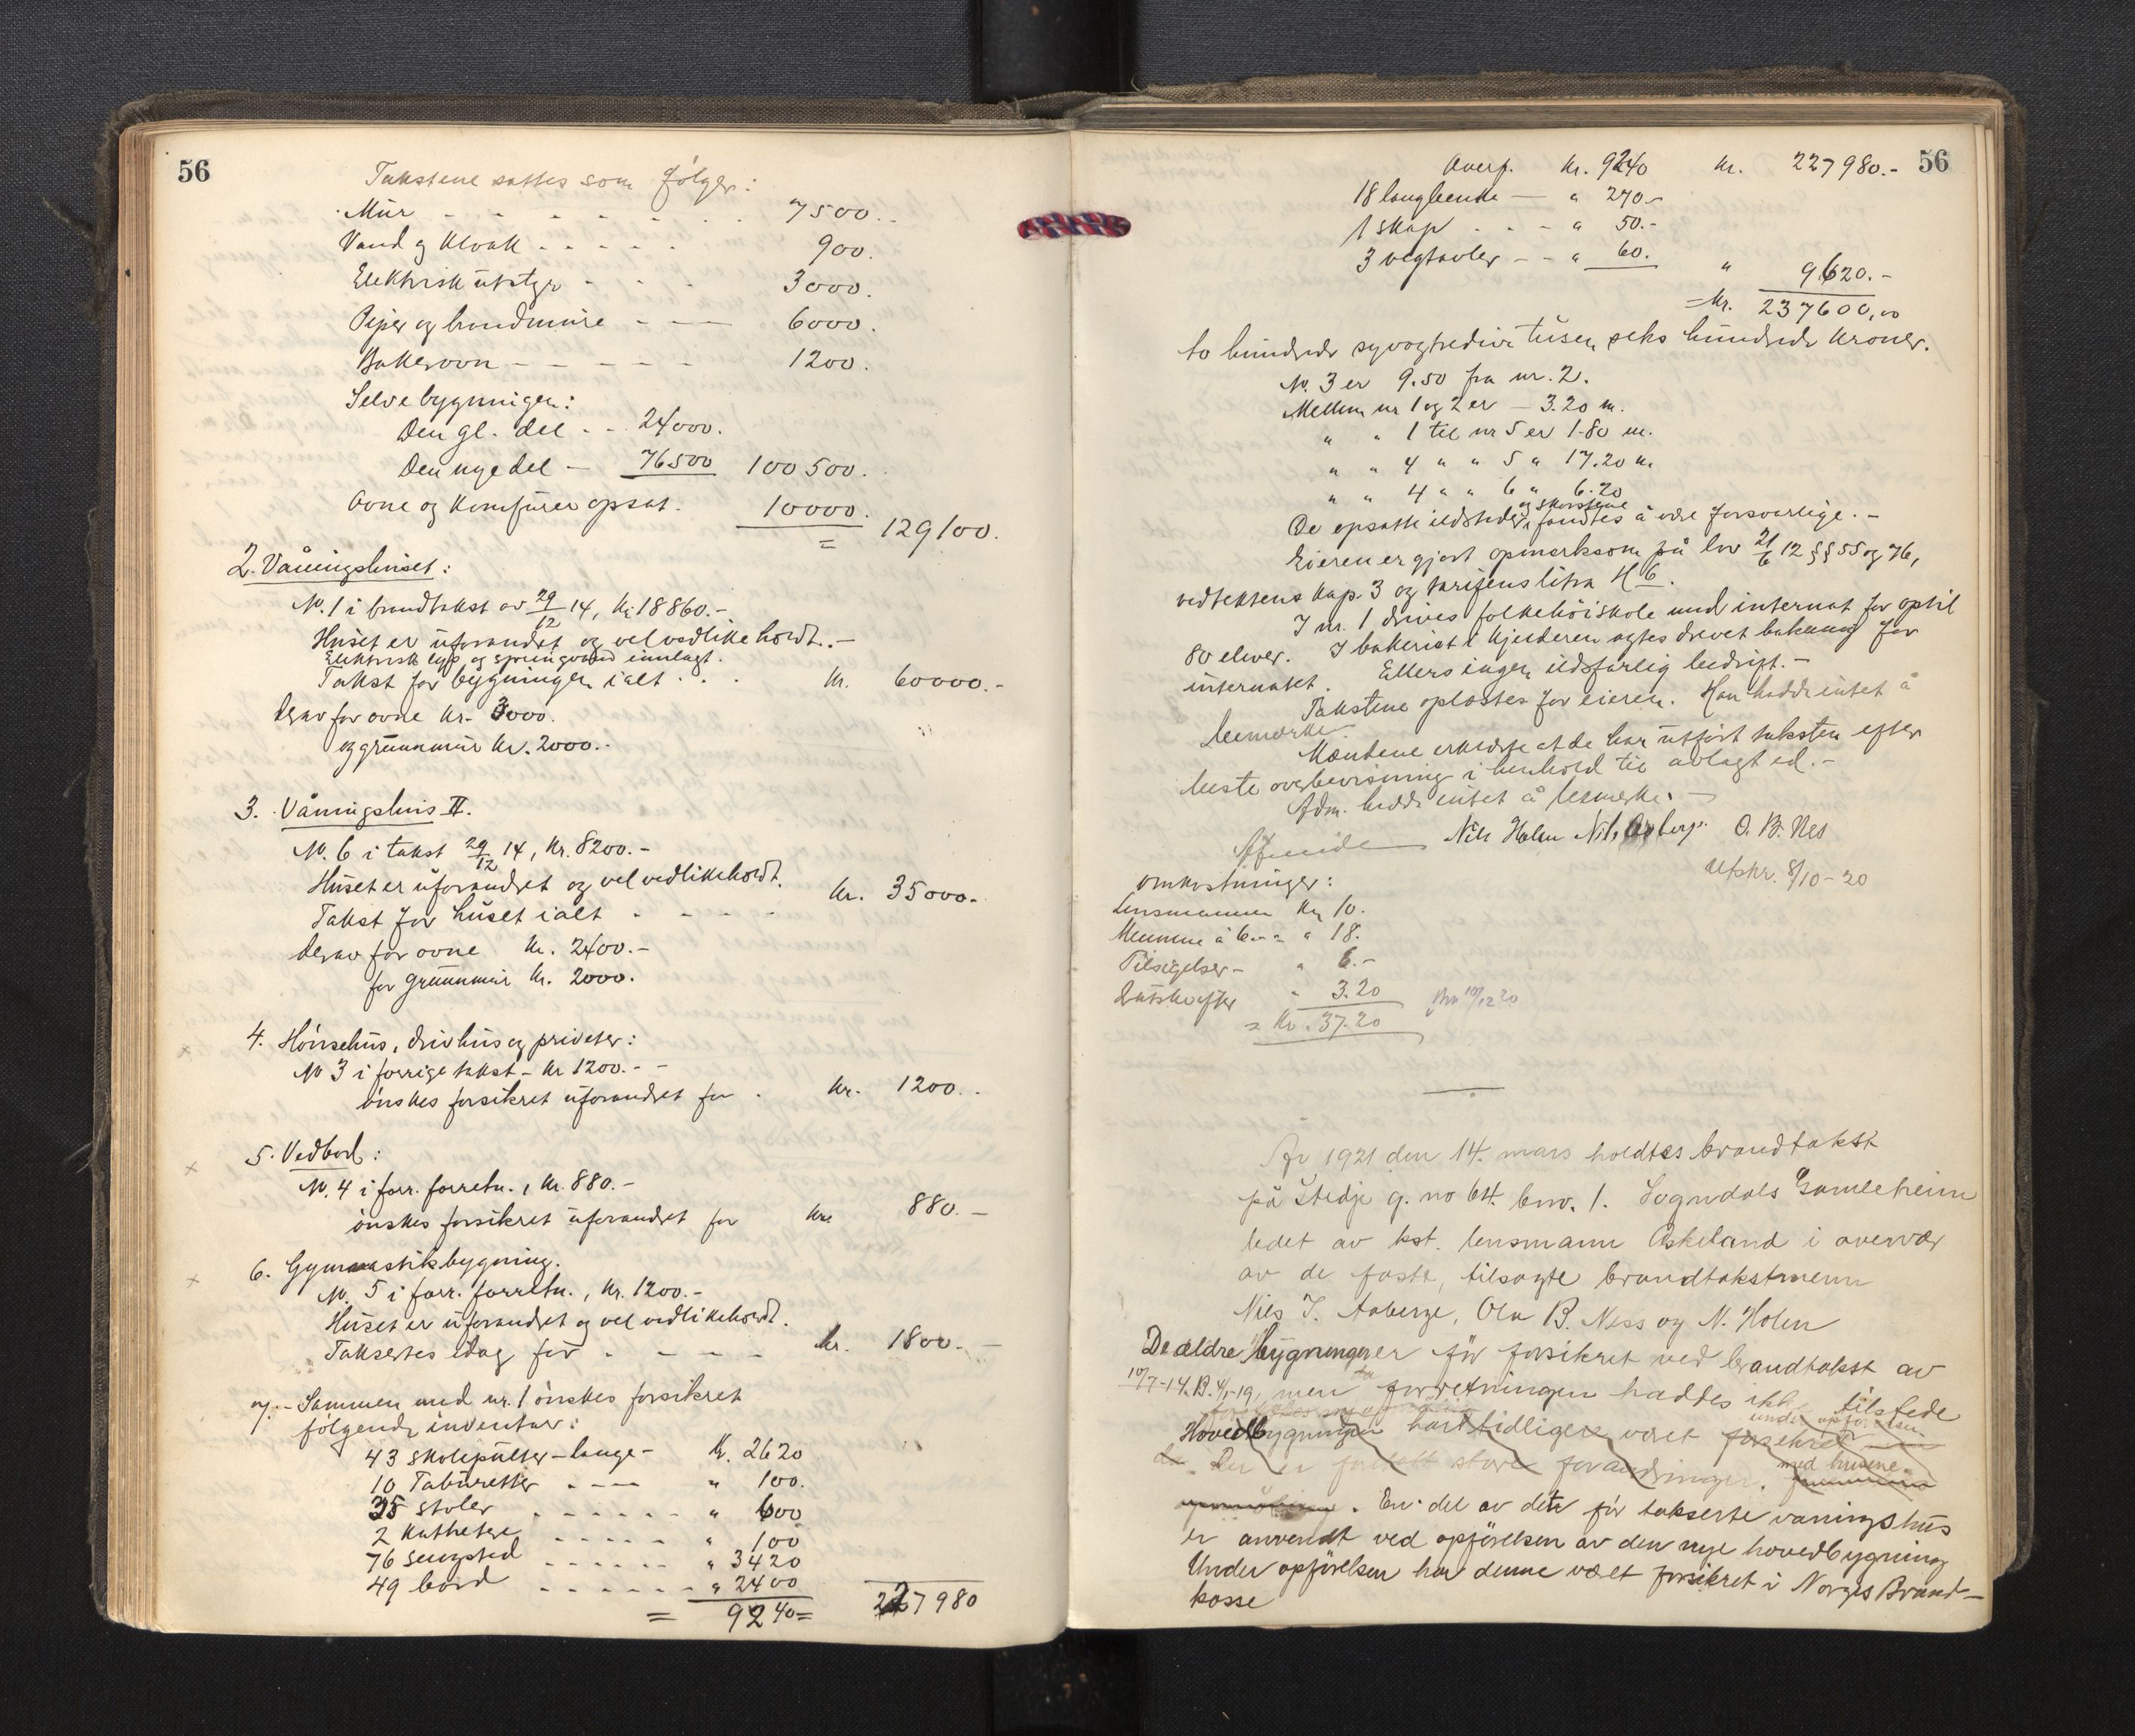 56
Takstene sattes som følger:
Mur - - - - - - - 7500.-
Vand og Kloak - - - - - 900.
Elektrisk utstyr - - - 3000.
Piper og brandmure - - - 6000.
Bakerovn - - - - - 1200.
Selve bygningen:
Den gl. del - - 24000.
Den nye del - 76500 100500.
Ovne og Komfurer opsat. 10000.
= 129100.
2. Våningshuset:
No. 1 i brandtakst av 29/12 14, Kr. 18860.-
Huset er uforandret og vel vedlikeholdt.-
Elektrisk lys og springvand innlagt.
Takst for bygningen ialt . . . Kr. 60000.-
Derav for ovne Kr. 3000.
og grunnmur Kr. 2000.-
3. Våningshus II.
No. 6 i takst 29/12 14, Kr. 8200.-
Huset er uforandret og vel vedlikeholdt.
Takst for huset ialt - - - - Kr. 35000.-
Derav for ovne Kr. 2400.-
for grunnmur Kr. 2000.
4. Hönsehus, drivhus og priveter:
No 3 i forrige takst - Kr 1200.- -
ønskes forsikret uforandret for . Kr. 1200. .
5. Vedbod:
No. 4 i forr. forretn., Kr. 880.-
ønskes forsikret uforandret for Kr. 880.-
6. Gymnastikbygning.
No. 5 i forr. forretn., Kr. 1200.-
Huset er uforandret og vel vedlikeholdt.
Taksertes idag for - - - - Kr. 1800.-
7. - Sammen med nr. 1 önskes forsikret
følgende inventar:
43 skolepulter - lange - Kr. 2620
10 Taburetter - - - " 100.
35 stoler - - - - - - " 600
2 Kathetre - - - - - " 100
76 sengsted - - - - - - " 3420
49 bord - - - - - - " 2400
= 9240= 227980
56
Overf. Kr. 9240 Kr. 227980.-
18 langbenke - " 270.-
1 skap . . - " 50.-
3 vegtavler - - " 60. " 9620.-
= Kr. 237600,00
to hundrede syvogtredive tusen seks hundrede Kroner.
No. 3 er 9.50 fra nr. 2.
Mellem nr 1 og 2 er - 3.20 m.
" " 1 til nr 5 er 1.80 m.
" " 4 " " 5 " 17.20 m.
" " 4 " " 6 " 6.20
og skorstene
De opsatte ildsteder fandtes å være forsvarlige.-
Eieren er gjort opmerksom på lov 21/6 12 §§ 55 og 76,
vedtektens Kap. 3 og tarifens litra H 6.
I nr. 1 drives folkehöiskole med internat for optil
80 elever. I bakeriet i kjelderen agtes drevet bakning for
internatet. Ellers ingen ildsfarlig bedrift.-
Takstene oplæstes for eieren. Han hadde intet å
bemerke.
Mændene erklærte at de har utført taksten efter
beste overbevisning i henhold til avlagt ed.-
Adm. hadde intet å bemerke. -
Nils Holen Nils Aaberge O. B. Nes
Utskr. 8/10-20
Omkostninger:
Lensmannen Kr. 10.
Mennene à 6.- " 18.
Tilsigelser - " 6.-
Utskrifter " 3.20
= Kr. 37.20
10/12 20
År 1921 den 14. mars holdtes brandtakst
på Stedje g. no 64. bno. 1. Sogndals Gamleheim
ledet av kst. lensmann Askeland i overvær
av de faste, tilsagte brandtakstmenn
Nils I. Aaberge, Ola B. Ness og N. Holen
De ældre bygninger er før forsikret ved brandtakst av
10/7-14. B. 4/1-19, men forretningen haddes ikke tilstede
under opførelsen
Hovedbygningen har tidligere været forsikret
de. Der er foretatt store forandringer. med husene.
. En del av det før takserte vaningshus
er anvendt ved opførelsen av den nye hovedbygning
Under opførelsen har denne vært forsikret i Norges Brand-
kasse